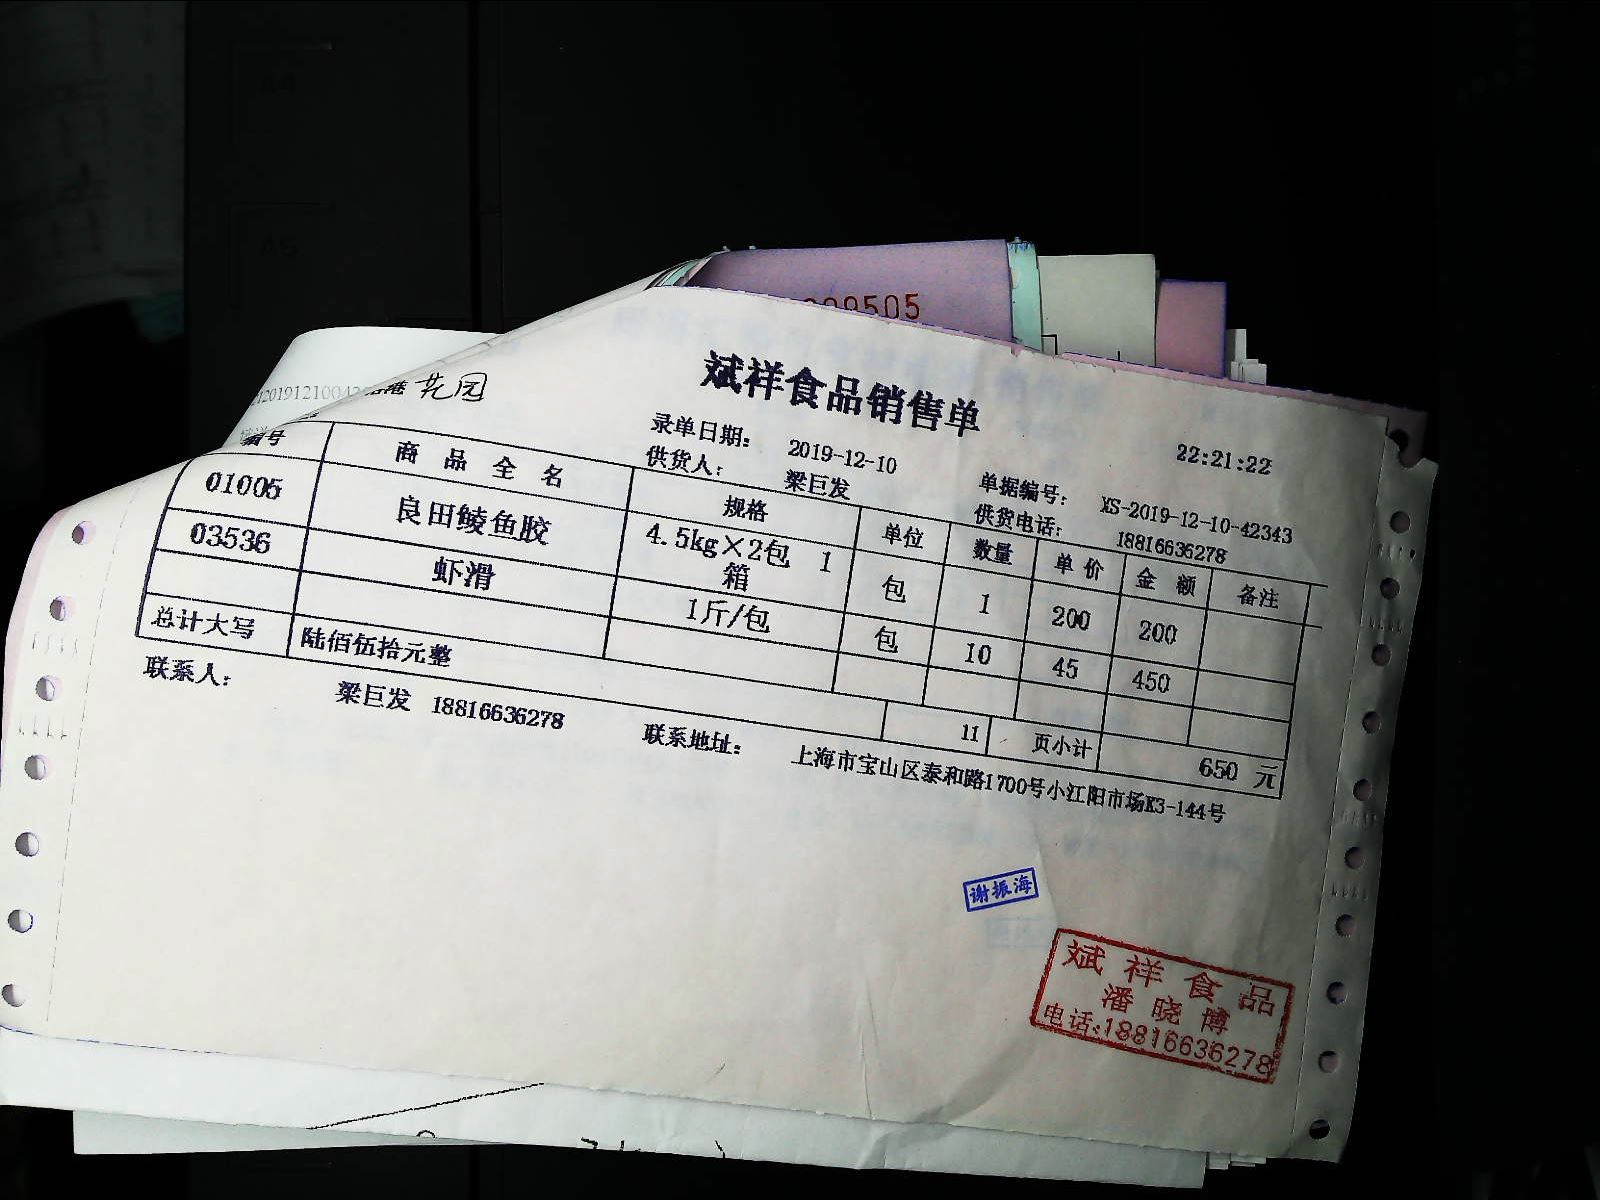 09505
斌祥食品销售单
22:21:22
港 花园
录单日期: 2019-12-10 单据编号: XS-2019-12-10-42343
供货人: 梁巨发 供货电话: 18816636278
编号 商品全名 规格 单位 数量 单价 金额 备注
01005 良田鲮鱼胶 4.5kg×2包 1箱 包 1 200 200
03536 虾滑 1斤/包 包 10 45 450
总计大写 陆佰伍拾元整 11 页小计 650 元
联系人: 梁巨发 18816636278 联系地址: 上海市宝山区泰和路1700号小江阳市场K3-144号
谢振海
斌祥食品
潘晓博
电话:18816636278